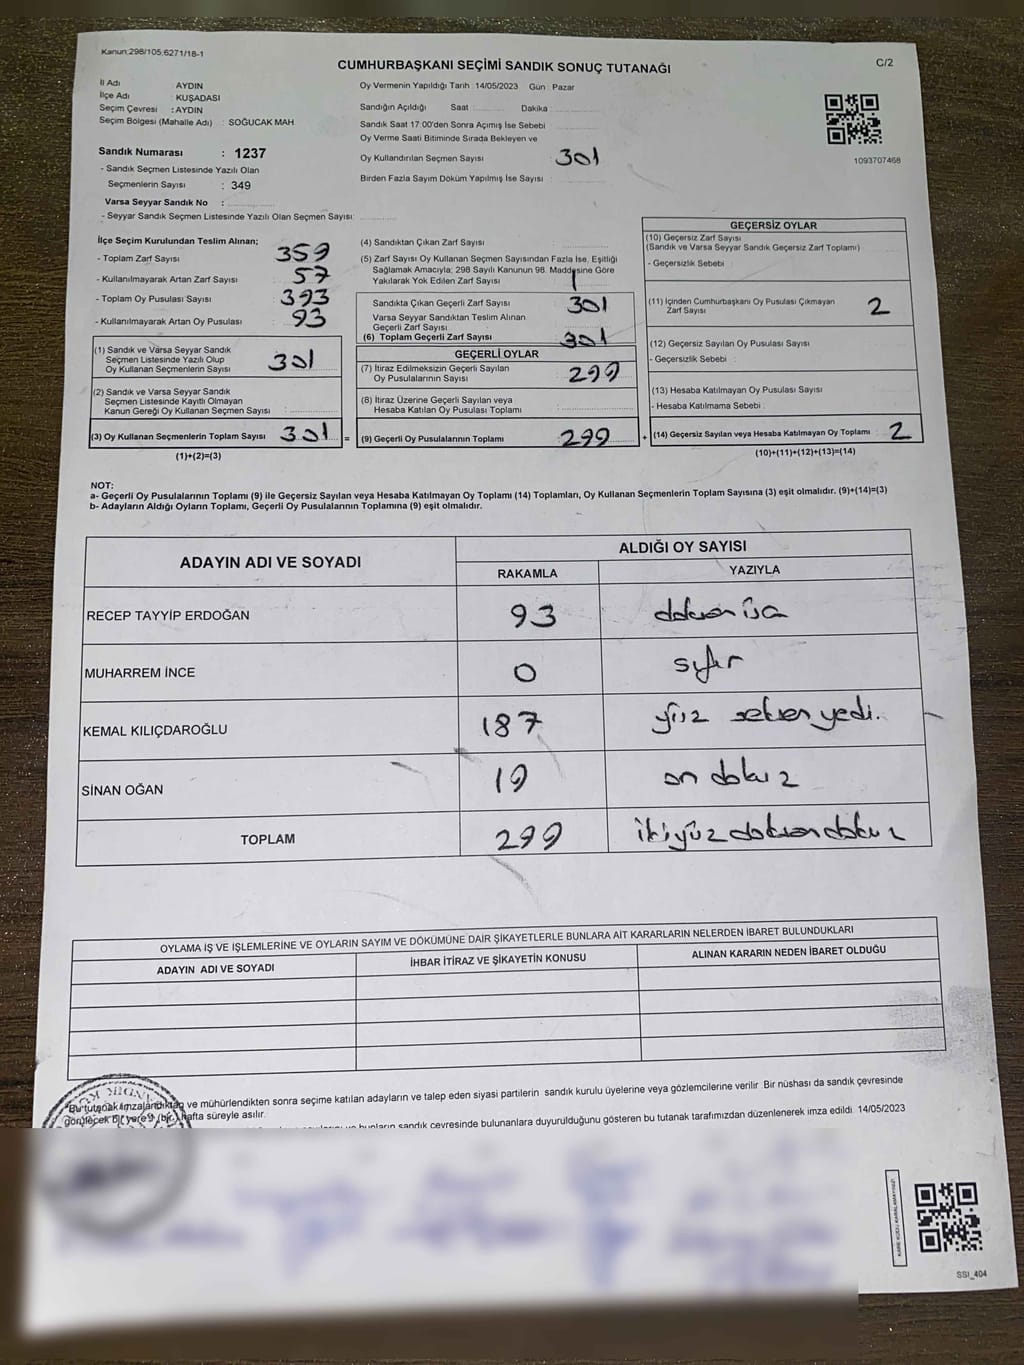 Kanun:298/105.6271/18-1
CUMHURBAŞKANI SEÇİMİ SANDIK SONUÇ TUTANAĞI
C/2
İl Adı : AYDIN
İlçe Adı : KUŞADASI
Seçim Çevresi : AYDIN
Seçim Bölgesi (Mahalle Adı) : SOĞUCAK MAH
Sandık Numarası : 1237
- Sandık Seçmen Listesinde Yazılı Olan
Seçmenlerin Sayısı : 349
Varsa Seyyar Sandık No :
- Seyyar Sandık Seçmen Listesinde Yazılı Olan Seçmen Sayısı:
Oy Vermenin Yapıldığı Tarih : 14/05/2023 Gün : Pazar
Sandığın Açıldığı Saat Dakika
Sandık Saat 17:00'den Sonra Açımış İse Sebebi
Oy Verme Saati Bitiminde Sırada Bekleyen ve
Oy Kullandırılan Seçmen Sayısı 301
Birden Fazla Sayım Döküm Yapılmış İse Sayısı :
1093707468
İlçe Seçim Kurulundan Teslim Alınan;
- Toplam Zarf Sayısı 359
- Kullanılmayarak Artan Zarf Sayısı : 57
- Toplam Oy Pusulası Sayısı 393
- Kullanılmayarak Artan Oy Pusulası 93
(1) Sandık ve Varsa Seyyar Sandık
Seçmen Listesinde Yazılı Olup
Oy Kullanan Seçmenlerin Sayısı 301
(2) Sandık ve Varsa Seyyar Sandık
Seçmen Listesinde Kayıtlı Olmayan
Kanun Gereği Oy Kullanan Seçmen Sayısı :
(3) Oy Kullanan Seçmenlerin Toplam Sayısı 301 =
(1)+(2)=(3)
(4) Sandıktan Çıkan Zarf Sayısı
(5) Zarf Sayısı Oy Kullanan Seçmen Sayısından Fazla İse, Eşitliği
Sağlamak Amacıyla; 298 Sayılı Kanunun 98. Maddesine Göre
Yakılarak Yok Edilen Zarf Sayısı
Sandıkta Çıkan Geçerli Zarf Sayısı 301
Varsa Seyyar Sandıktan Teslim Alınan
Geçerli Zarf Sayısı
(6) Toplam Geçerli Zarf Sayısı 301
GEÇERLİ OYLAR
(7) İtiraz Edilmeksizin Geçerli Sayılan
Oy Pusulalarının Sayısı 299
(8) İtiraz Üzerine Geçerli Sayılan veya
Hesaba Katılan Oy Pusulası Toplamı
(9) Geçerli Oy Pusulalarının Toplamı 299 +
GEÇERSİZ OYLAR
(10) Geçersiz Zarf Sayısı
(Sandık ve Varsa Seyyar Sandık Geçersiz Zarf Toplamı)
- Geçersizlik Sebebi
(11) İçinden Cumhurbaşkanı Oy Pusulası Çıkmayan
Zarf Sayısı 2
(12) Geçersiz Sayılan Oy Pusulası Sayısı
- Geçersizlik Sebebi :
(13) Hesaba Katılmayan Oy Pusulası Sayısı
- Hesaba Katılmama Sebebi :
(14) Geçersiz Sayılan veya Hesaba Katılmayan Oy Toplamı : 2
(10)+(11)+(12)+(13)=(14)
NOT:
a- Geçerli Oy Pusulalarının Toplamı (9) ile Geçersiz Sayılan veya Hesaba Katılmayan Oy Toplamı (14) Toplamları, Oy Kullanan Seçmenlerin Toplam Sayısına (3) eşit olmalıdır. (9)+(14)=(3)
b- Adayların Aldığı Oyların Toplamı, Geçerli Oy Pusulalarının Toplamına (9) eşit olmalıdır.
ADAYIN ADI VE SOYADI
ALDIĞI OY SAYISI
RAKAMLA YAZIYLA
RECEP TAYYİP ERDOĞAN 93 doksan üç
MUHARREM İNCE 0 sıfır
KEMAL KILIÇDAROĞLU 187 yüz seksen yedi.
SİNAN OĞAN 19 on dokuz
TOPLAM 299 iki yüz doksan dokuz
OYLAMA İŞ VE İŞLEMLERİNE VE OYLARIN SAYIM VE DÖKÜMÜNE DAİR ŞİKAYETLERLE BUNLARA AİT KARARLARIN NELERDEN İBARET BULUNDUKLARI
ADAYIN ADI VE SOYADI İHBAR İTİRAZ VE ŞİKAYETİN KONUSU ALINAN KARARIN NEDEN İBARET OLDUĞU
"Bu tutanak imzalandıktan ve mühürlendikten sonra seçime katılan adayların ve talep eden siyasi partilerin sandık kurulu üyelerine veya gözlemcilerine verilir. Bir nüshası da sandık çevresinde
görülecek bir yere bir hafta süreyle asılır.
bunların sandık çevresinde bulunanlara duyurulduğunu gösteren bu tutanak tarafımızdan düzenlenerek imza edildi. 14/05/2023
KARE KODU KARALAMAYINIZ!
SSI_404